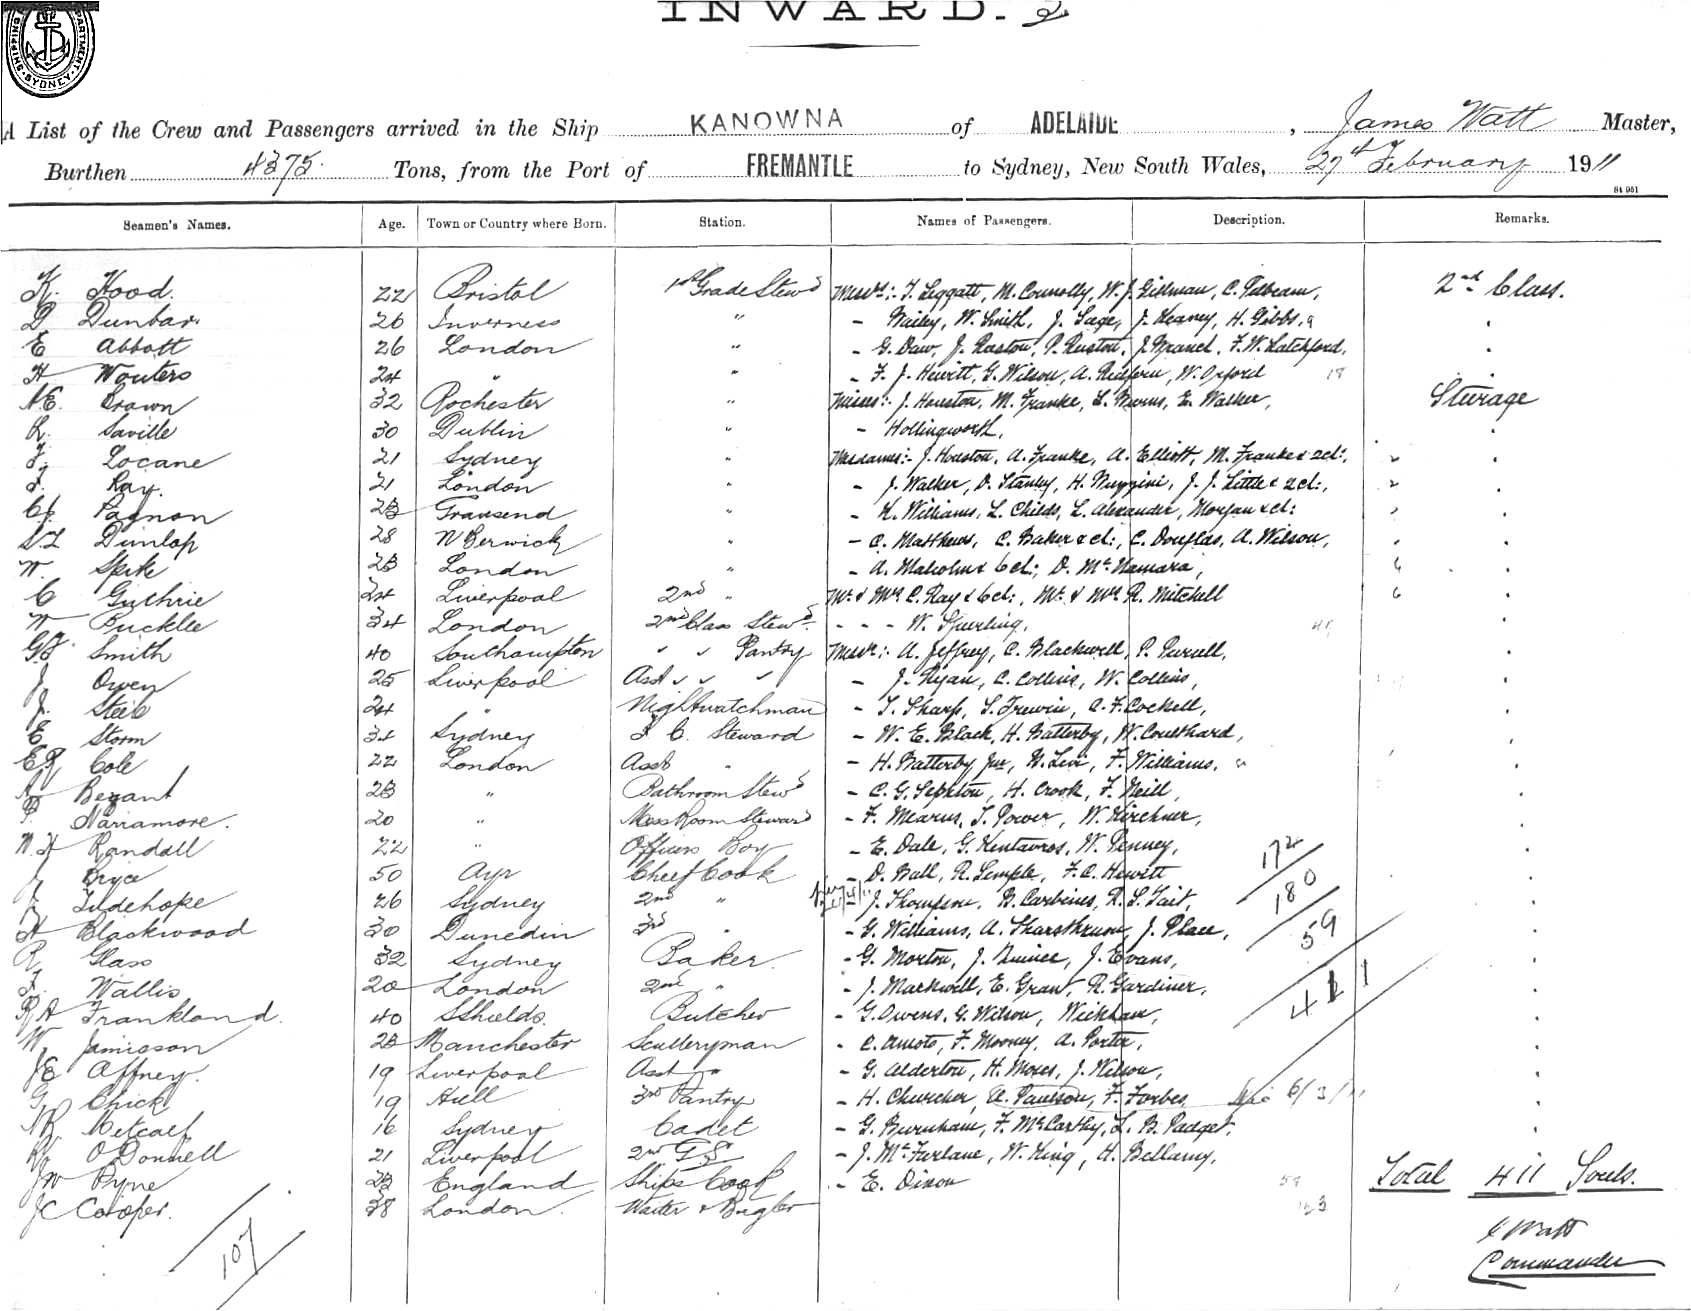 INWARD. 2
SHIPPING DEPARTMENT SYDNEY
A List of the Crew and Passengers arrived in the Ship KANOWNA of ADELAIDE, James Watt Master,
Burthen 4375 Tons, from the Port of FREMANTLE to Sydney, New South Wales, 27th February 1911
St 951
Seamen's Names. Age. Town or Country where Born. Station. Names of Passengers. Description. Remarks.
K. Hood. 22 Bristol 1st Grade Stewd Messrs:- T. Leggatt, M. Connolly, W. J. Gillman, C. Pulbeam, 2nd Class.
D Dunbar. 26 Inverness " - Bailey, W. Smith, J. Sage, J. Keaney, H. Gibbs,
E Abbott 26 London " - G. Daw, J. Ruston, P. Ruston, J. Branch, F. W. Latchford,
H Wouters 24 " " - F. J. Hewitt, G. Wilson, A. Redfern, W. Orford 18
N.E. Brown 32 Rochester " Misses:- J. Houston, M. Franke, L. Burns, E. Walker, Steerage
R. Saville 30 Dublin " - Hollingworth,
F. Locane 21 Sydney " Mesdames:- J. Houston, A. Franke, A. Elliott, M. Franke & 2 ch:,
F. Ray. 21 London " - J. Walker, D. Stanley, H. J. J. Little & 2 ch:,
Pagnon 23 Gravsend " - K. Williams, L. Childs, L. Alexander, Morgan & ch:
Dunlop 28 N Berwick " - C. Matthews, C. Baker & ch:, C. Douglas, A. Wilson,
W. Spike 23 London " - A. Malcolm & 6 ch:, D. McNamara, 6
C Guthrie 24 Liverpool 2nd " Mr. & Mrs. C. Ray & 6 ch:, Mr. & Mrs. R. Mitchell 6
W Puckle 34 London 2nd Class Stewd. - - - W. Spurling. 41
G.J. Smith 40 Southampton " " Pantry Messrs:- A. Jeffrey, C. Blackwell, P. Purcell,
J Owen 25 Liverpool Asst " " " - J. Ryan, C. Collins, W. Collins,
J. Steib 24 " Nightwatchman - T. Sharp, S. Trewin, A. F. Cockell,
E Storm 34 Sydney F. C. Steward - W. E. Black, H. Batterby, W. Coulthard,
E.R Cole 22 London Asst " - H. Batterby Jnr, N. Levi, F. Williams,
A Bezant 23 " Bathroom Stewd - C. G. Sephton, H. Crook, F. Neill,
P. Narramore. 20 " Mess Room Steward - F. Mearns, T. Power, W. Kirchner,
N. H Randall 22 " Officers Boy - E. Dale, G. Kentavros, W. Penney, 172
J Bryce 50 Ayr Chief Cook - D. Ball, R. Semple, F. C. Hewitt 180
J. Tudehope 26 Sydney 2nd " J. Thompson, B. Carbines, R. L. Tait, 59
H Blackwood 30 Dunedin 3rd " - G. Williams, A. J. Place,
R. Glass 32 Sydney Baker. - G. Morton, J. Evans, 411
F. Wallis 20 London 2nd " - J. Markwell, E. Grant, R. Gardiner,
R.A Frankland. 40 S Shields. Butcher - G. Owens, G. Wilson, Wickham,
W. Jamieson 23 Manchester Sculleryman - C. Amoto, F. Mooney, A. Porter,
J E Affney. 19 Liverpool Asst " - G. Alderton, H. Moses, J. Wilson,
G. Chick 19 Hull 3rd Pantry - H. Churcher, A. Paulson, F. Forbes 6/3/11
Metcalf 16 Sydney Cadet - G. Burnham, F. McCarthy, L. B. Padget.
R. O'Donnell 21 Liverpool 2nd G S - J. McFarlane, W. King, H. Bellamy,
J W Pyne 23 England Ships Cook - E. Dixon 59 Total 411 Souls.
J C Cooper. 38 London. Waiter & Bugler 153
107
J Watt
Commander